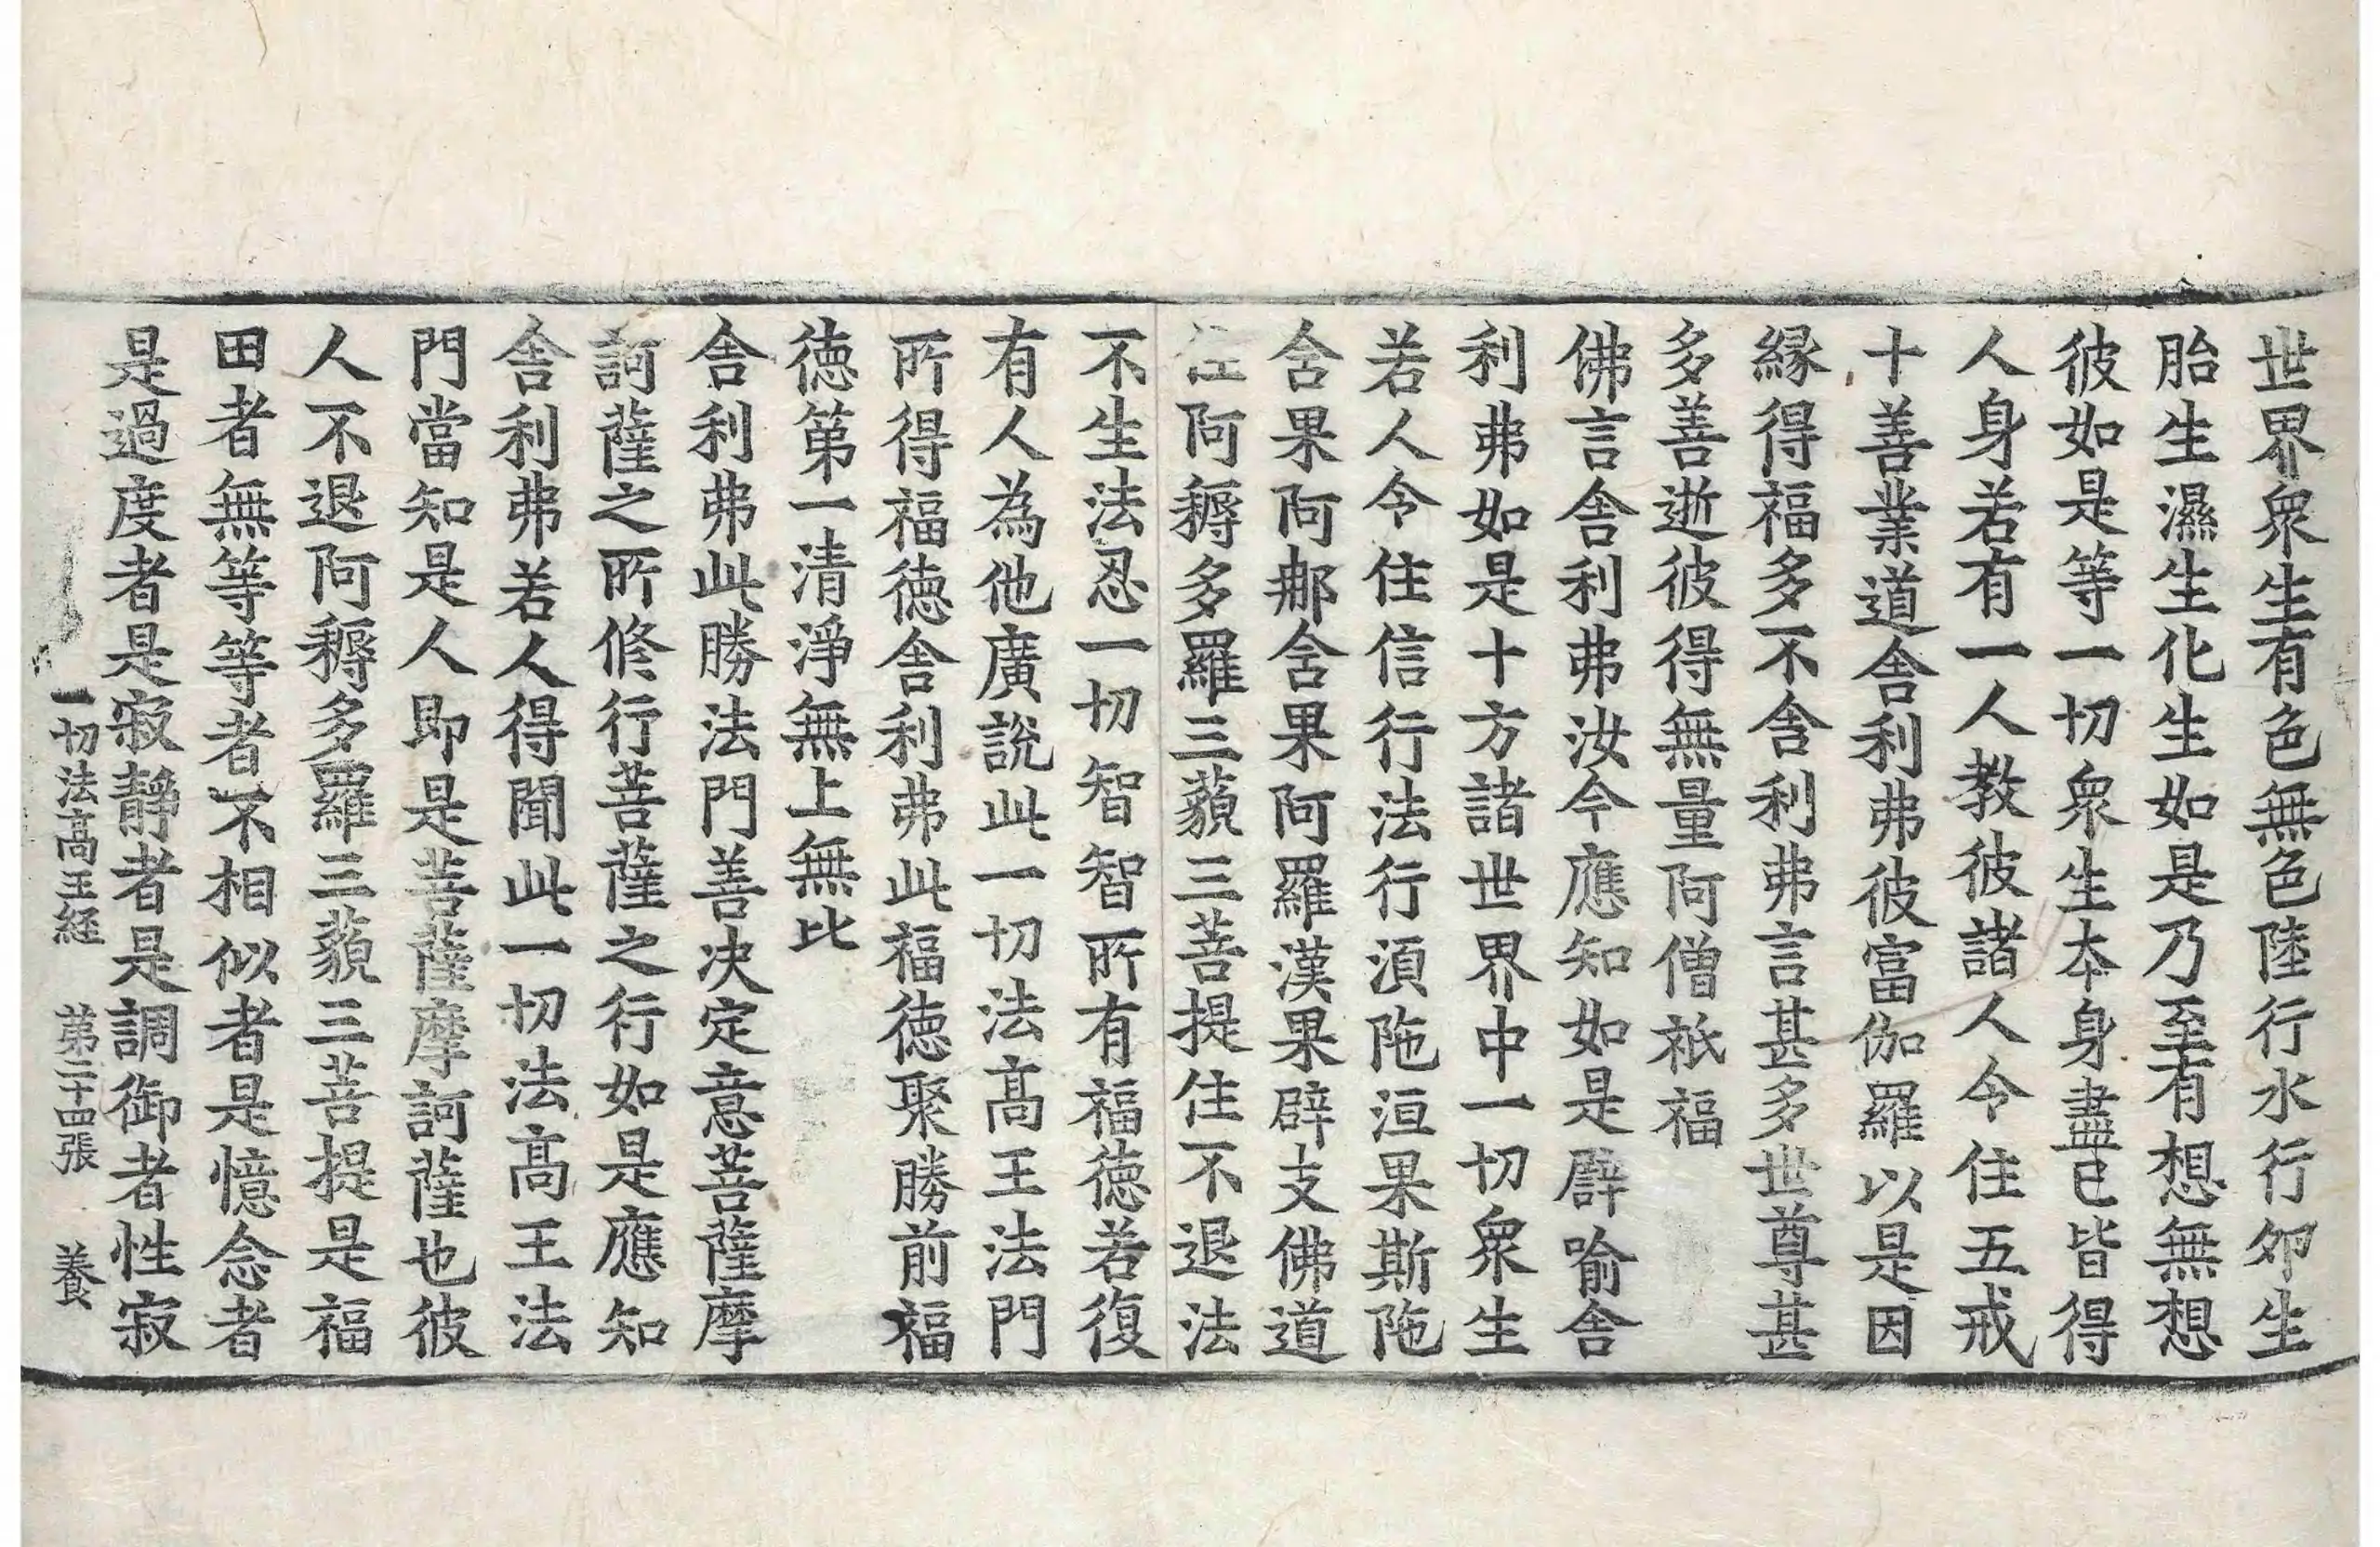 世界衆生有色無色陸行水行卵生
胎生濕生化生如是乃至有想無想
彼如是等一切衆生本身盡已皆得
人身若有一人教彼諸人令住五戒
十善業道舍利弗彼富伽羅以是因
縁得福多不舍利弗言甚多世尊甚
多善逝彼得無量阿僧祇福
佛言舍利弗汝今應知如是譬喻舍
利弗如是十方諸世界中一切衆生
若人令住信行法行湏陁洹果斯陁
含果阿𨙻含果阿羅漢果辟支佛道
住阿耨多羅三藐三菩提住不退法
不生法忍一切智智所有福徳若復
有人為他廣說此一切法髙王法門
所得福徳舍利弗此福徳聚勝前福
徳第一清淨無上無比
舍利弗此勝法門善决定意菩薩摩
訶薩之所修行菩薩之行如是應知
舍利弗若人得聞此一切法髙王法
門當知是人即是菩薩摩訶薩也彼
人不退阿耨多羅三藐三菩提是福
田者無等等者不相似者是憶念者
是過度者是寂靜者是調御者性寂
一切法髙王経　第二十四張　養